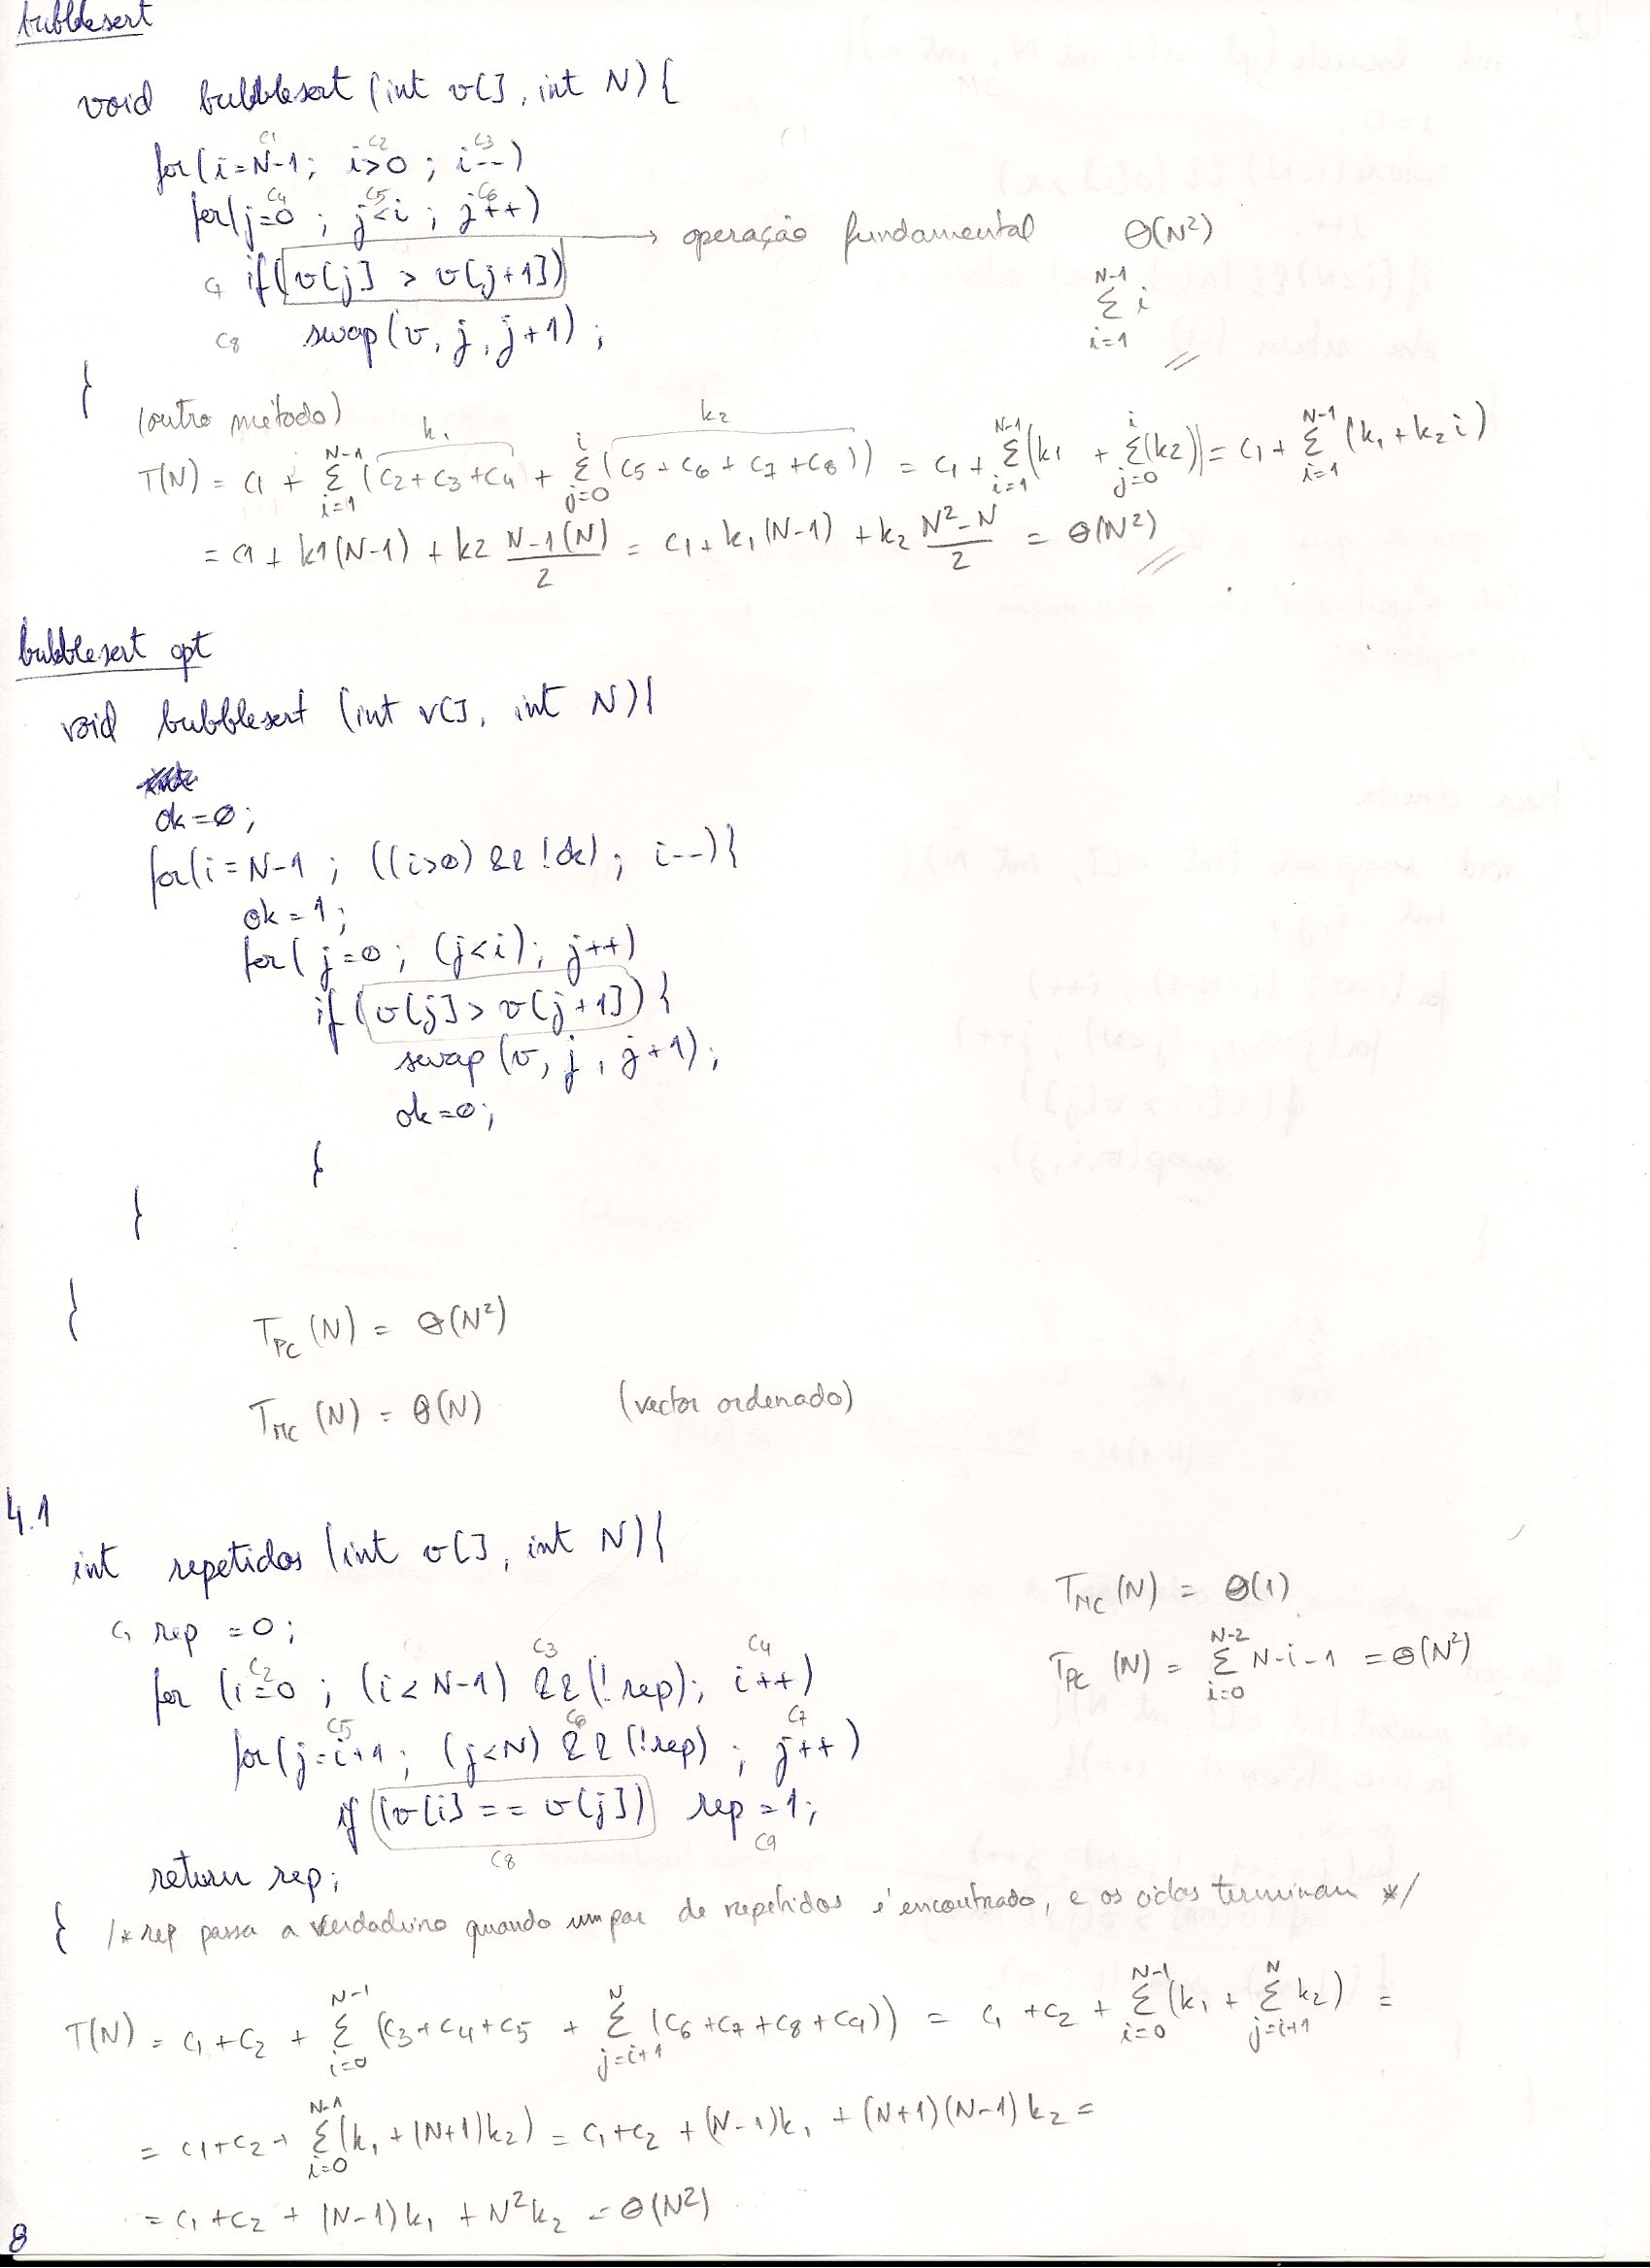 bubblesort
void bubblesort (int v[], int N) {
c1 c2 c3
for(i=N-1; i>0 ; i--)
c4 c5 c6
for(j=0 ; j<i ; j++)
if( v[j] > v[j+1]) → operação fundamental Θ(N²)
c7
c8 swap(v, j, j+1) ; N-1 Σ i=1 i
}
(outro método)
k1 k2
T(N) = c1 + Σ_{i=1}^{N-1} (c2+c3+c4 + Σ_{j=0}^{i} (c5+c6+c7+c8)) = c1 + Σ_{i=1}^{N-1} (k1 + Σ_{j=0}^{i} (k2)) = c1 + Σ_{i=1}^{N-1} (k1+k2 i)
= c1 + k1(N-1) + k2 N-1(N)/2 = c1 + k1(N-1) + k2 N²-N/2 = Θ(N²)
bubblesort opt
void bubblesort (int v[], int N){
ok=0;
for(i=N-1 ; ((i>0) && !ok) ; i--){
ok = 1;
for( j=0; (j<i); j++)
if( v[j] > v[j+1]) {
swap(v, j, j+1);
ok=0;
}
}
}
T_PC (N) = Θ(N²)
T_MC (N) = Θ(N) (vector ordenado)
4.1
int repetidos (int v[], int N){
T_MC (N) = Θ(1)
c1 rep =0;
T_PC (N) = Σ_{i=0}^{N-2} N-i-1 = Θ(N²)
c2 c3 c4
for (i=0 ; (i<N-1) && (!rep); i++)
c5 c6 c7
for(j=i+1; (j<N) && (!rep) ; j++)
if (v[i] == v[j]) rep=1;
c8 c9
return rep;
} /*rep passa a verdadeiro quando um par de repetidos é encontrado, e os ciclos terminam */
T(N) = c1+c2 + Σ_{i=0}^{N-1} (c3+c4+c5 + Σ_{j=i+1}^{N} (c6+c7+c8+c9)) = c1+c2 + Σ_{i=0}^{N-1} (k1 + Σ_{j=i+1}^{N} k2) =
= c1+c2 + Σ_{i=0}^{N-1} (k1 + (N+1)k2) = c1+c2 + (N-1)k1 + (N+1)(N-1)k2 =
= c1+c2 + (N-1)k1 + N²k2 = Θ(N²)
8